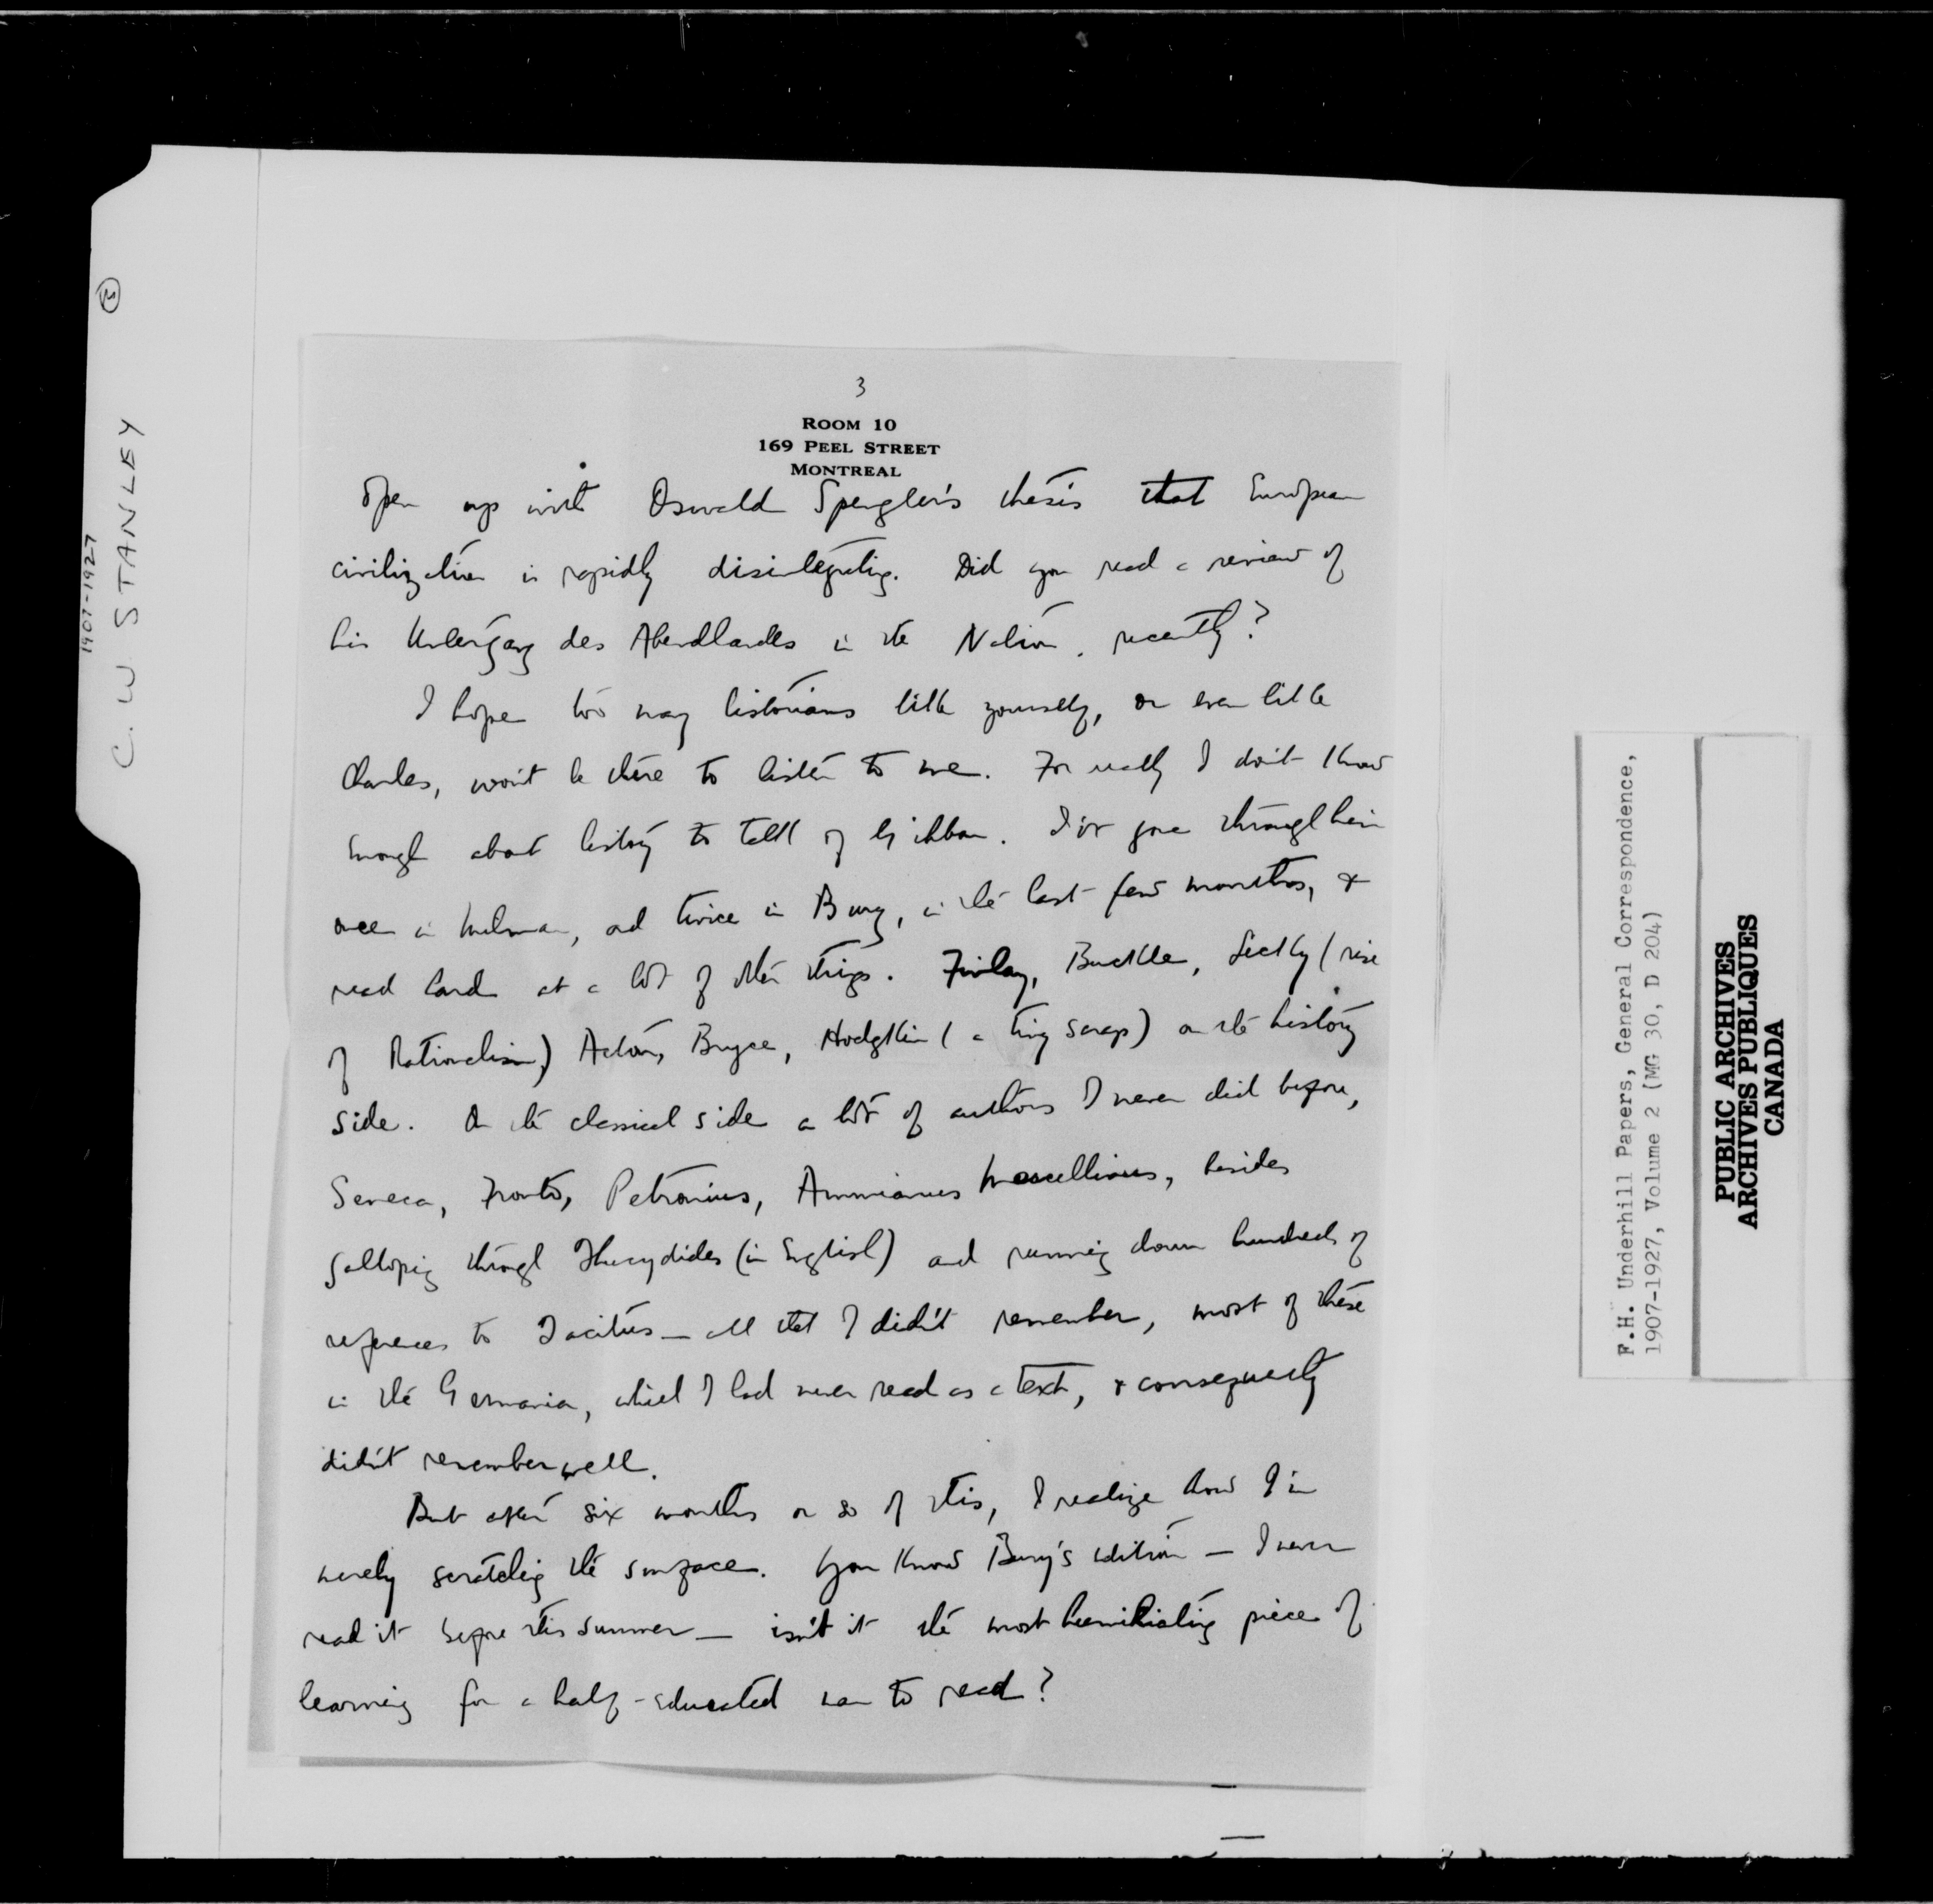 3
ROOM 10
169 PEEL STREET
MONTREAL
open up with Oswald Spengler's thesis that European
civilization is rapidly disintegrating. Did you read a review of
his Untergang des Abendlandes in the Nation, recently?
I hope too many historians like yourself, or even little
Charles, won't be there to listen to me. For really I don't know
enough about history to talk of Gibbon. I've gone through him
once in Milman, and twice in Bury, in the last few months, &
read hard at a lot of other things. Finlay, Buckle, Lecky (rise
of Rationalism) Acton, Bryce, Hodgkin (a tiny scrap) on the history
side. On the classical side a lot of authors I never did before,
Seneca, Fronto, Petronius, Ammianus Marcellinus, besides
galloping through Thucydides (in English) and running down hundreds of
references to Tacitus — all that I didn't remember, most of these
in the Germania, which I had never read as a text, & consequently
didn't remember well.
But after six months or so of this, I realize how I'm
merely scratching the surface. You know Bury's edition — I never
read it before this summer — isn't it the most humiliating piece of
learning for a half-educated man to read?
C. W. STANLEY
1907-1927
F.H. Underhill Papers, General Correspondence,
1907-1927, Volume 2 (MG 30, D 204)
PUBLIC ARCHIVES
ARCHIVES PUBLIQUES
CANADA